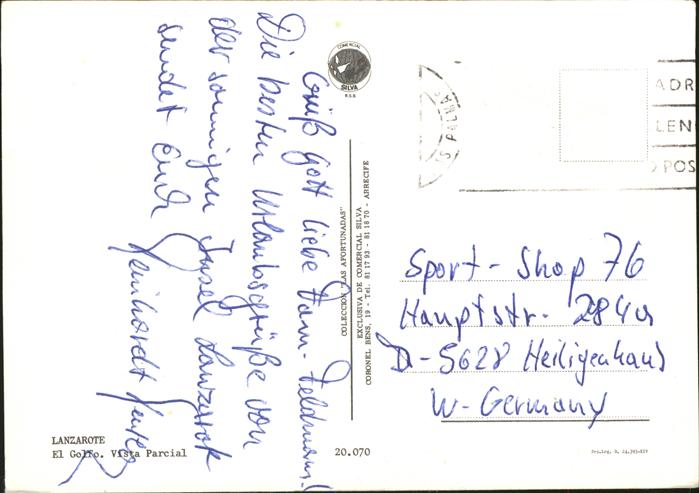 Grüß Gott liebe Dom-Feldmann!
Die besten Urlaubsgrüße von
der sonnigen Insel Lanzarote
sendet Euch
Reinhardt
COMERCIAL
SILVA
R.S.B.
COLECCION "LAS AFORTUNADAS"
EXCLUSIVA DE COMERCIAL SILVA
CORONEL BENS, 19 - Tel. 81 17 93 - 81 18 70 - ARRECIFE
PALMA
ADR
LEN
POS
Sport-Shop 76
Hauptstr. 284a
D-5628 Heiligenhaus
W-Germany
LANZAROTE
El Golfo. Vista Parcial
20.070